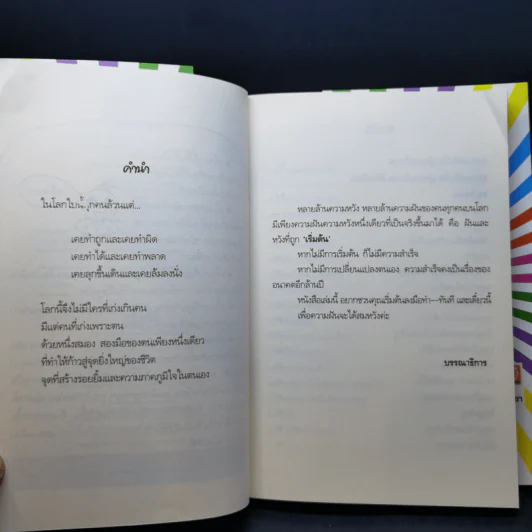 คำนำ
ในโลกใบนี้ทุกคนล้วนแต่...
เคยทำถูกและเคยทำผิด
เคยทำได้และเคยทำพลาด
เคยลุกขึ้นเดินและเคยล้มลงนั่ง
โลกนี้จึงไม่มีใครที่เก่งเกินคน
มีแต่คนที่เก่งเพราะตน
ด้วยหนึ่งสมอง สองมือของตนเพียงหนึ่งเดียว
ที่ทำให้ก้าวสู่จุดยิ่งใหญ่ของชีวิต
จุดที่สร้างรอยยิ้มและความภาคภูมิใจในตนเอง
หลายล้านความหวัง หลายล้านความฝันของคนทุกคนบนโลก
มีเพียงความฝันความหวังหนึ่งเดียวที่เป็นจริงขึ้นมาได้ คือ ฝันและ
หวังที่ถูก 'เริ่มต้น'
หากไม่มีการเริ่มต้น ก็ไม่มีความสำเร็จ
หากไม่มีการเปลี่ยนแปลงตนเอง ความสำเร็จคงเป็นเรื่องของ
อนาคตอีกล้านปี
หนังสือเล่มนี้ อยากชวนคุณเริ่มต้นลงมือทำ--ทันที และเดี๋ยวนี้
เพื่อความฝันจะได้สมหวังค่ะ
บรรณาธิการ